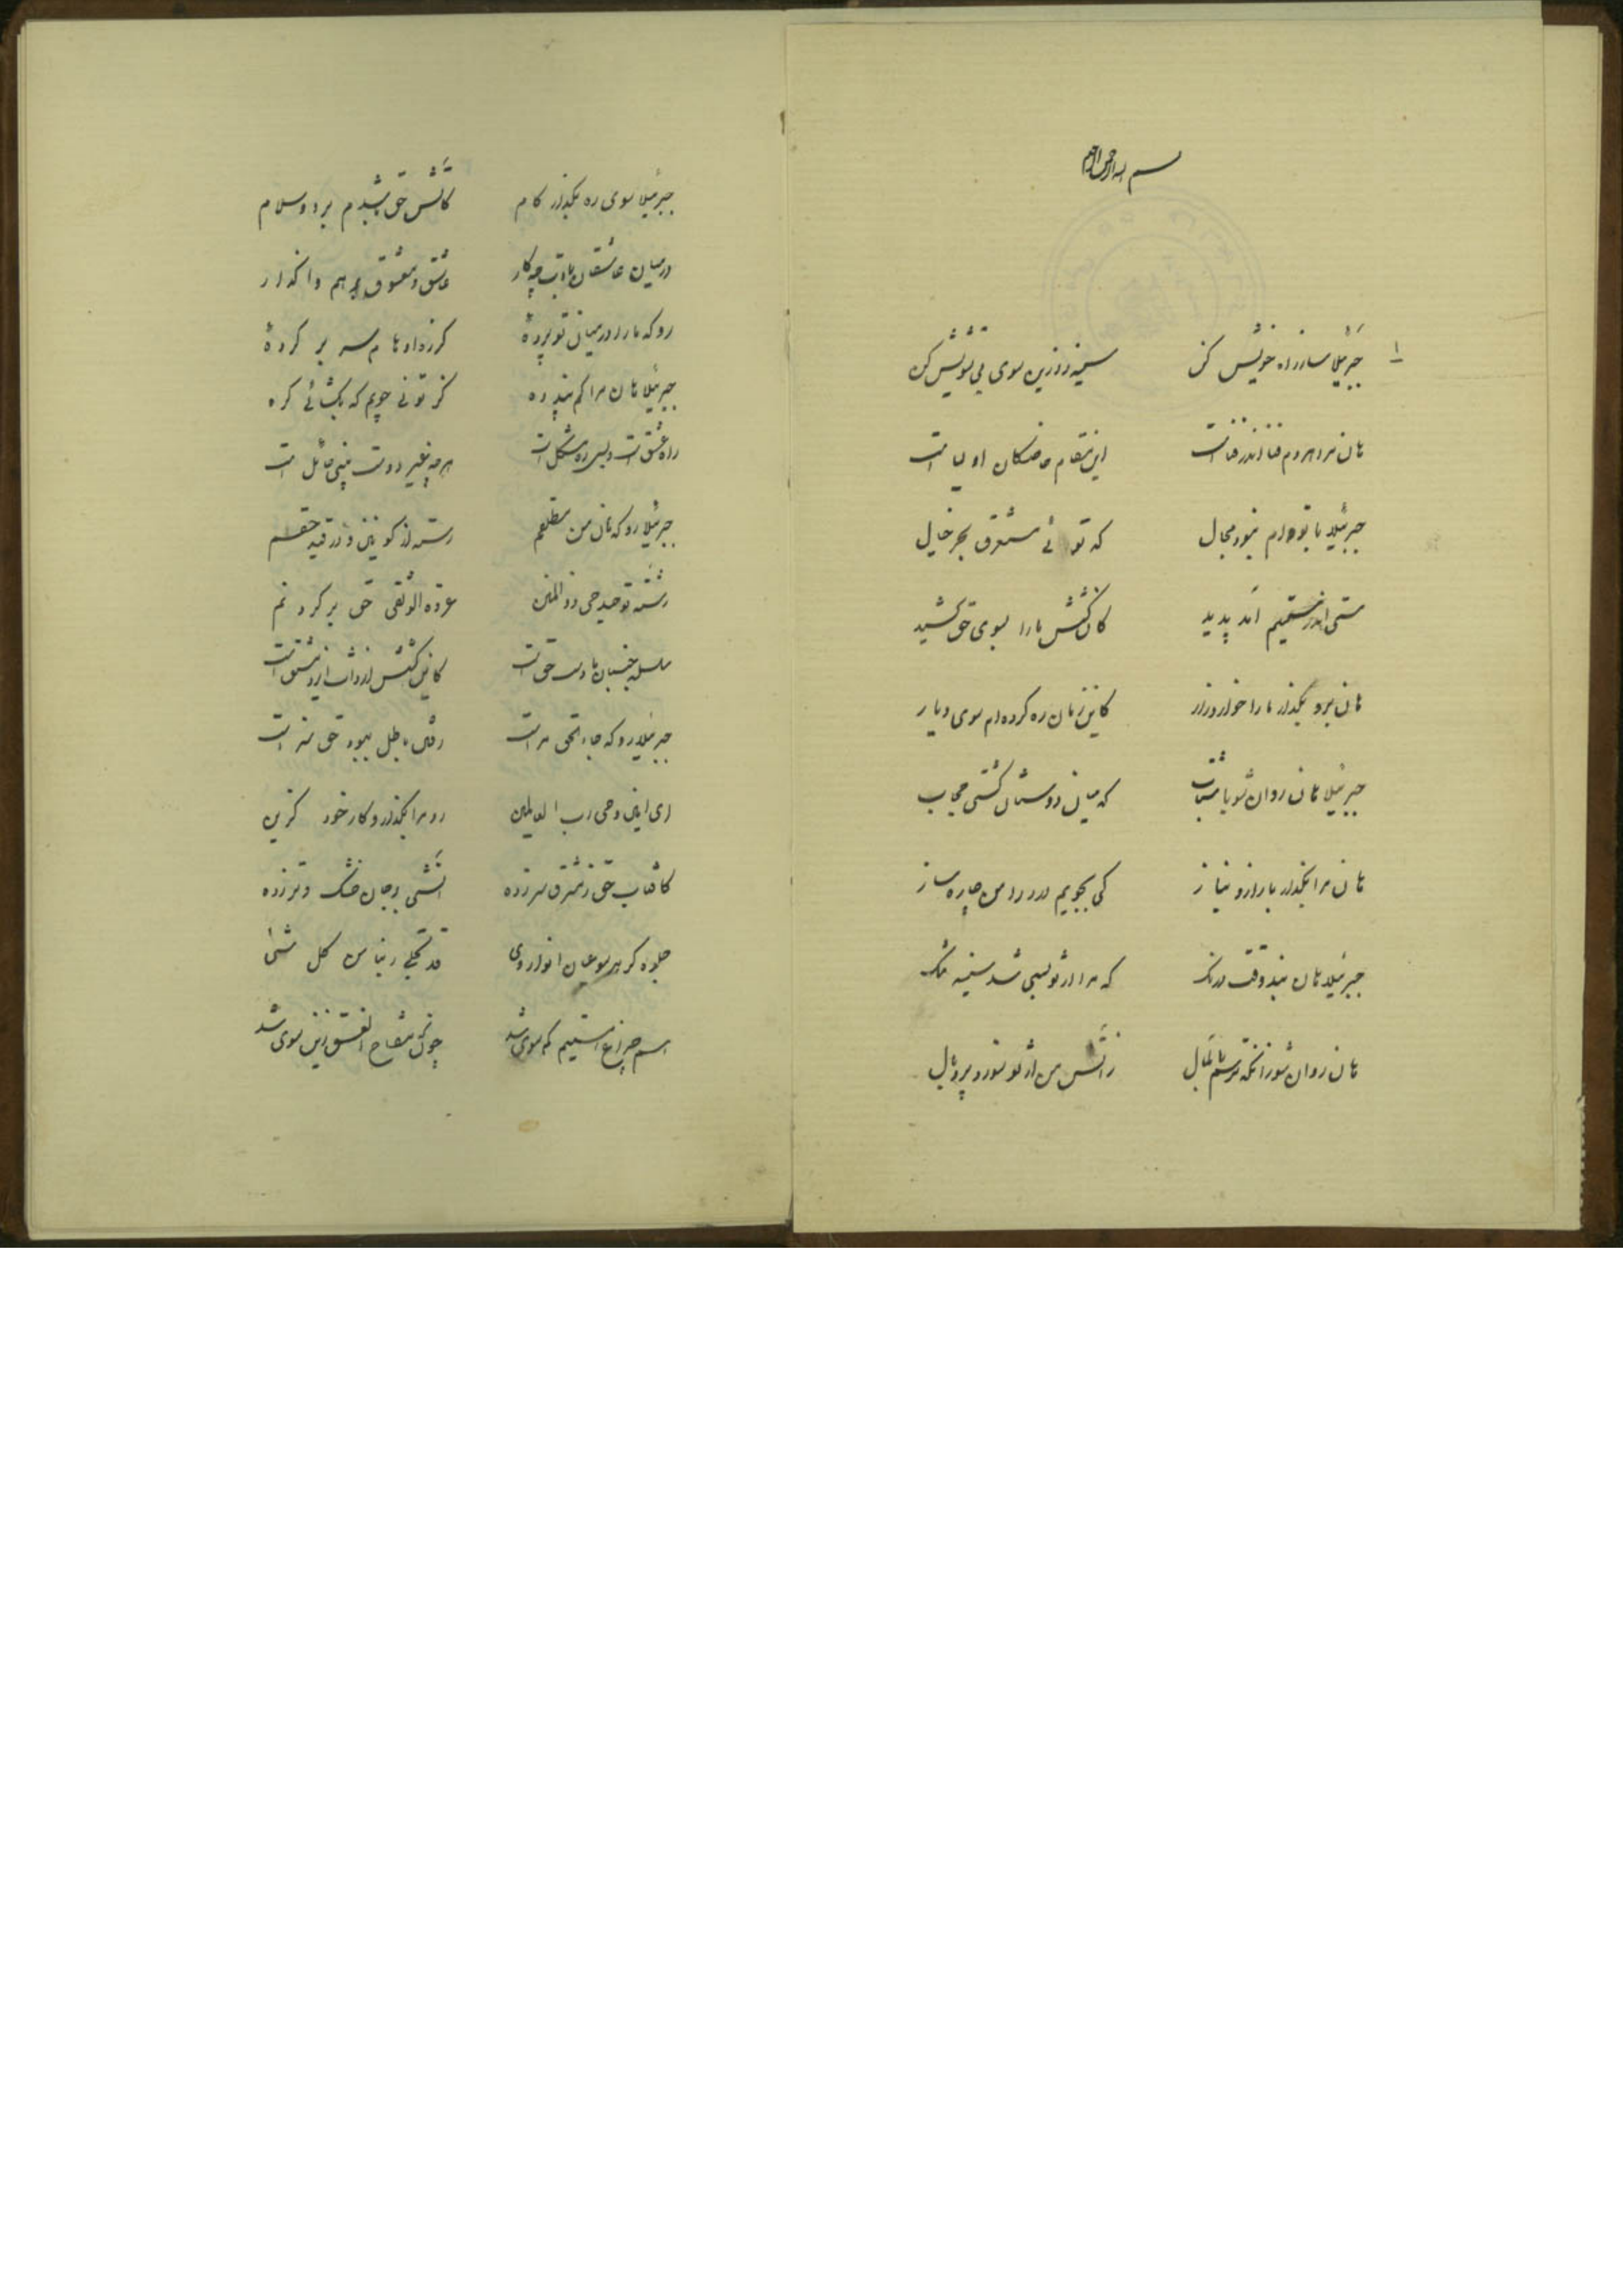 بسم الله الرحمن الرحیم
۱ جبرئیلا ساز راه خویش کن سینه زین سوی بی تشویش کن
هان مرا هر دم فنا اندر فناست این مقام خاصگان اولیاست
جبرئیلا با توام نبود مجال که توئی مستغرق بحر خیال
مستی اندر مستیم آمد پدید کان کشش ما را بسوی حق کشید
هان برو بگذار ما را خوار و زار کاین زمان ره کرده‌ام سوی دیار
جبرئیلا هان روان شو با شتاب که میان دوستان گشتی حجاب
هان مرا بگذار با راز و نیاز کی بجویم درد را من چاره ساز
جبرئیلا هان نبد وقت درنک که مرا از تو بسی شد سینه تنک
هان روان شو زانکه ترسم بال زآتش من از تو سوزد پر و بال
جبرئیلا سوی ره بگذار کام کاتش حق شد برد و سلام
در میان عاشقان بادت چه کار عاشق و معشوق بر هم واگذار
رو که ما را در میان تو پردهٔ سر بر کردهٔ
جبرئیلا هان مرا کم پند ده کز تو نی جویم که بگشائی کره
راه عشق است و بسی ره مشکل است هر چه غیر دوست بینی حائل است
جبرئیلا رو که هان من مطلقم رسته از کونین و در قید حقم
رشته توحید حی ذوالمنن عروه الوثقی حق بر کردنم
سلسله جنبان ما دست حق است کاین کشش از ذات
جبرئیلا رو که جاء الحق مراست باطل ببود حق
ای امین وحی رب العالمین رو مرا بگذار و کار خود گزین
کافتاب حق ز مشرق سر زده آتشی بر جان خشک و تر زده
جلوه کر هر سو عیان انوار وی قد تجلی ربنا من کل شئی
چونکه مفتاح زین سوی شد